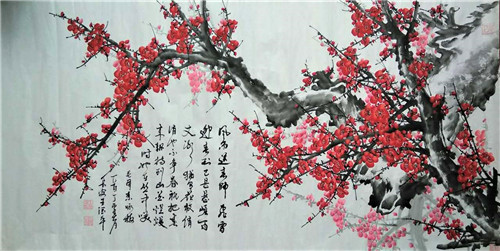 风雨送春归飞雪
迎春到已是悬崖百
丈冰犹有花枝俏
俏也不争春只把春
来报待到山花烂漫
时她在丛中笑
毛泽东咏梅